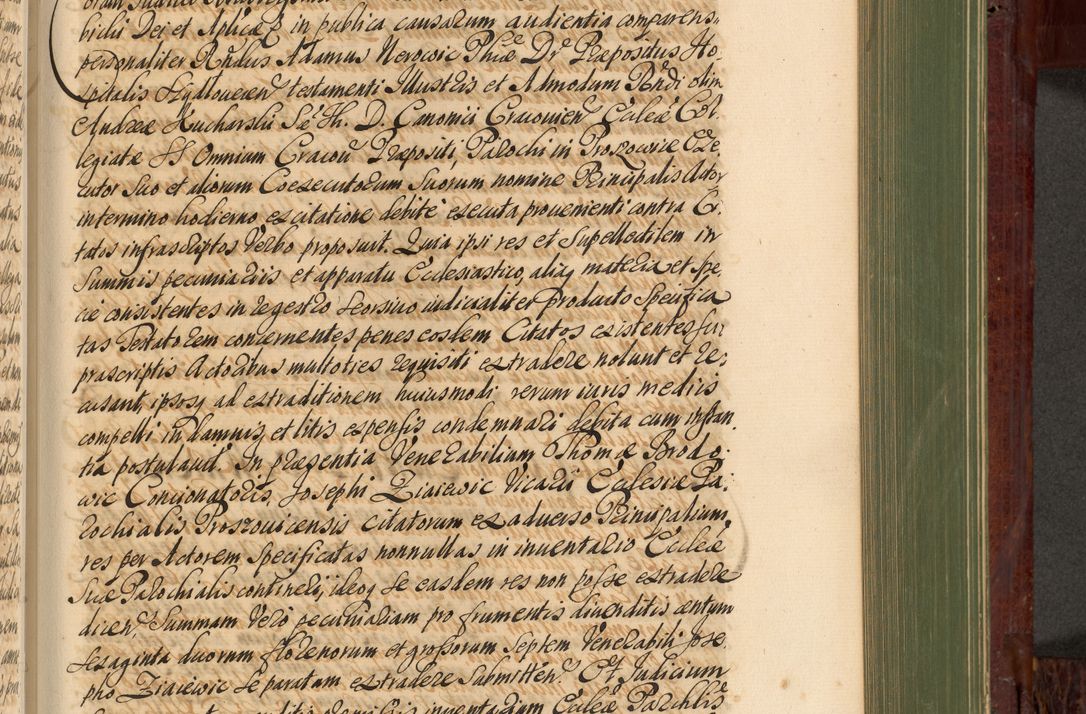 bichi Dei et Aplicæ in publica causarum audientia comparens
personaliter Rndus Adamus Nerowic Phiæ Dr Præpositus Ho-
spitalis testamenti Illustris et Admodum Rndi olim
Andreæ Kucharski Sæ Th. D. Canonici Cracouien Ecclæ Col,
legiatæ SS Omnium Cracou Præpositi, Parochi in Proszowic Exe,
cutor Suo et aliorum Coexecutorum Suorum nomine Principalis Actor
in termino hodierno ex citatione debitè executa prouenienti contra Ci,
tatos infrascriptos Verbo proposuit. Quia ipsi res et Supellectilem in
Summis pecuniarijs et apparatu Ecclesiastico, aliaq materia et Spe,
cie consistentes in regestro Seorsiuo iudicialiter producto Specifica
tas Testatorem concernentes penes eosdem Citatos existentes su,
prascriptis Actoribus multoties requisiti extradere nolunt et re,
cusant, ipsosq ad extraditionem huiusmodi rerum iuris medijs
compelli in damnis et litis expensis condemnari debita cum instan,
tia postulauit. In præsentia Venerabilium Thomæ Brodo,
wic Concionatoris, Josephi Ziaiewic Vicarij Ecclesiæ Pa,
rochialis Proszouicensis citatorum ex aduerso Principalium,
res per Actorem Specificatas nonnullas in inuentario Ecclæ
Suæ Parochialis contineri, ideoq se easdem res non posse extradere
dicen, Summam Verò pecuniariam pro frumentis diuenditis centum
sexaginta duorum florenorum et grossorum Septem Venerabili Jose,
pho Ziaiewic se paratam extradere Submitten. Et Judicium
inuentarium Ecclæ Parchlis